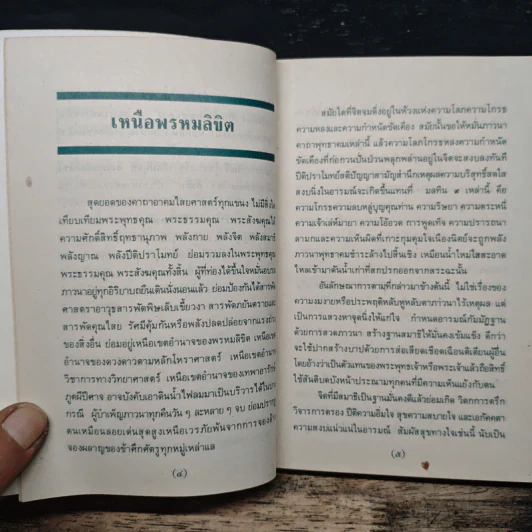 เหนือพรหมลิขิต
สุดยอดของคาถาอาคมไสยศาสตร์ทุกแขนง ไม่มีสิ่งใด
เทียบเทียมพระพุทธคุณ พระธรรมคุณ พระสังฆคุณได้
ความศักดิ์สิทธิ์ฤทธานุภาพ พลังกาย พลังจิต พลังสมาธิ
พลังญาณ พลังปีติปราโมทย์ ย่อมรวมลงในพระพุทธคุณ
พระธรรมคุณ พระสังฆคุณทั้งสิ้น ผู้ที่ท่องได้ขึ้นใจหมั่นอบรม
ภาวนาอยู่ทุกอิริยาบถยืนเดินนั่งนอนแล้ว ย่อมป้องกันได้สารพัด
ศาสตราอาวุธสารพัดพิษเล็บเขี้ยวงา สารพัดภยันตรายและ
สารพัดคุณไสย รัศมีคุ้มกันหรือพลังปลดปล่อยจากแรง
ของสิ่งอื่น ย่อมอยู่เหนือเขตอำนาจของพรหมลิขิต เหนือเขต
อำนาจของดวงดาวตามหลักโหราศาสตร์ เหนือเขตอำนาจ
วิชาการทางวิทยาศาสตร์ เหนือเขตอำนาจของเทพาอารักษ์
ภูตผีปีศาจ อาจบังคับเอาดินน้ำไฟลมมาเป็นบริวารได้ใน
กรณี ผู้บำเพ็ญภาวนาทุกคืนวัน ๆ ละหลาย ๆ จบ ย่อมปรา
ตนเหมือนลอยเด่นสุดสูงเหนือเวรภัยพ้นจากการจองล้าง
จองผลาญของข้าศึกศัตรูทุกหมู่เหล่าแล
(๔)
สมัยใดที่จิตจมดิ่งอยู่ในห้วงแห่งความโลภความโกรธ
ความหลงและความกำหนัดขัดเคือง สมัยนั้นขอให้หมั่นภาวนา
คาถาพุทธาคมเหล่านี้ แล้วความโลภโกรธหลงความกำหนัด
ขัดเคืองที่ก่อกวนปั่นป่วนพลุกพล่านอยู่ในจิตจะสงบลงทันที
ปีติปราโมทย์สติปัญญาสามัญสำนึกเหตุผลความบริสุทธิ์สดใส
สงบนิ่งในอารมณ์จะเกิดขึ้นแทนที่ มลทิน ๙ เหล่านี้ คือ
ความโกรธความลบหลู่บุญคุณท่าน ความริษยา ความตระหนี่
ความเจ้าเล่ห์มายา ความโอ้อวด การพูดเท็จ ความปรารถนา
ลามกและความเห็นผิดที่เกาะกุมคุมใจเนืองนิตย์จะถูกพลัง
ภาวนาพุทธาคมชำระล้างไปสิ้นเชิง เหมือนน้ำใหม่ใสสะอาด
ไหลเข้ามาดันน้ำเก่าที่สกปรกออกจากสระฉะนั้น
อันลักษณาการตามที่กล่าวมาข้างต้นนี้ ไม่ใช่เรื่องของ
ความงมงายหรือประพฤติหลับหูหลับตาภาวนาไร้เหตุผล แต่
เป็นการแสวงหาจุดนิ่งให้แก่ใจ กำหนดอารมณ์กัมมัฏฐาน
ด้วยการสวดภาวนา สร้างฐานสมาธิให้มั่นคงเข้มแข็ง ดีกว่า
จะใช้ปากสร้างบาปด้วยการส่อเสียดเชือดเฉือนติเตียนผู้อื่น
โดยอ้างว่าเป็นตัวแทนของพระพุทธเจ้าหรือพระเจ้าแล้วถือสิทธิ์
ใช้สันดิบดบังหน้าประณามทุกคนที่มีความเห็นแย้งกับตน
จิตที่มีสมาธิเป็นฐานมั่นคงดีแล้วย่อมเกิด วิตกการตรึก
วิจารการตรอง ปีติความอิ่มใจ สุขความสบายใจ และเอกัคคตา
ความสงบแน่วแน่ในอารมณ์ สัมผัสสุขทางใจเช่นนี้ นับเป็น
(๕)